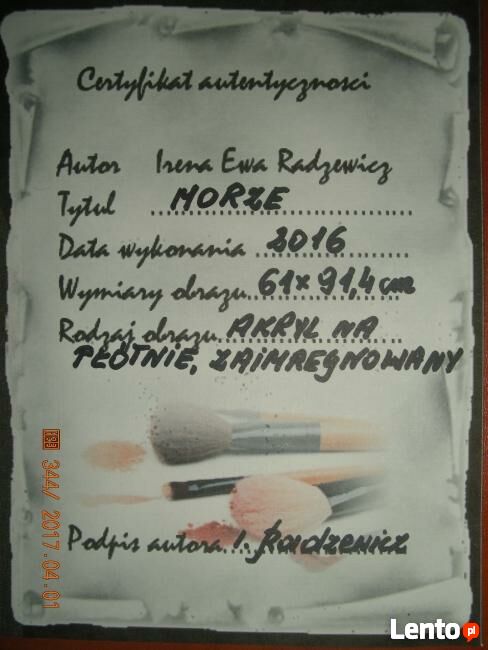 Certyfikat autentycznosci
Autor Irena Ewa Radzewicz
Tytul ..... MORZE
Data wykonania ... 2016
Wymiary obrazu.. 61x91,4 cm
Rodzaj obrazu.. AKRYL NA
PŁÓTNIE, ZAIMREGNOWANY
Podpis autora.. I. Radzewicz
344/ 2017.04.01
Lento.pl